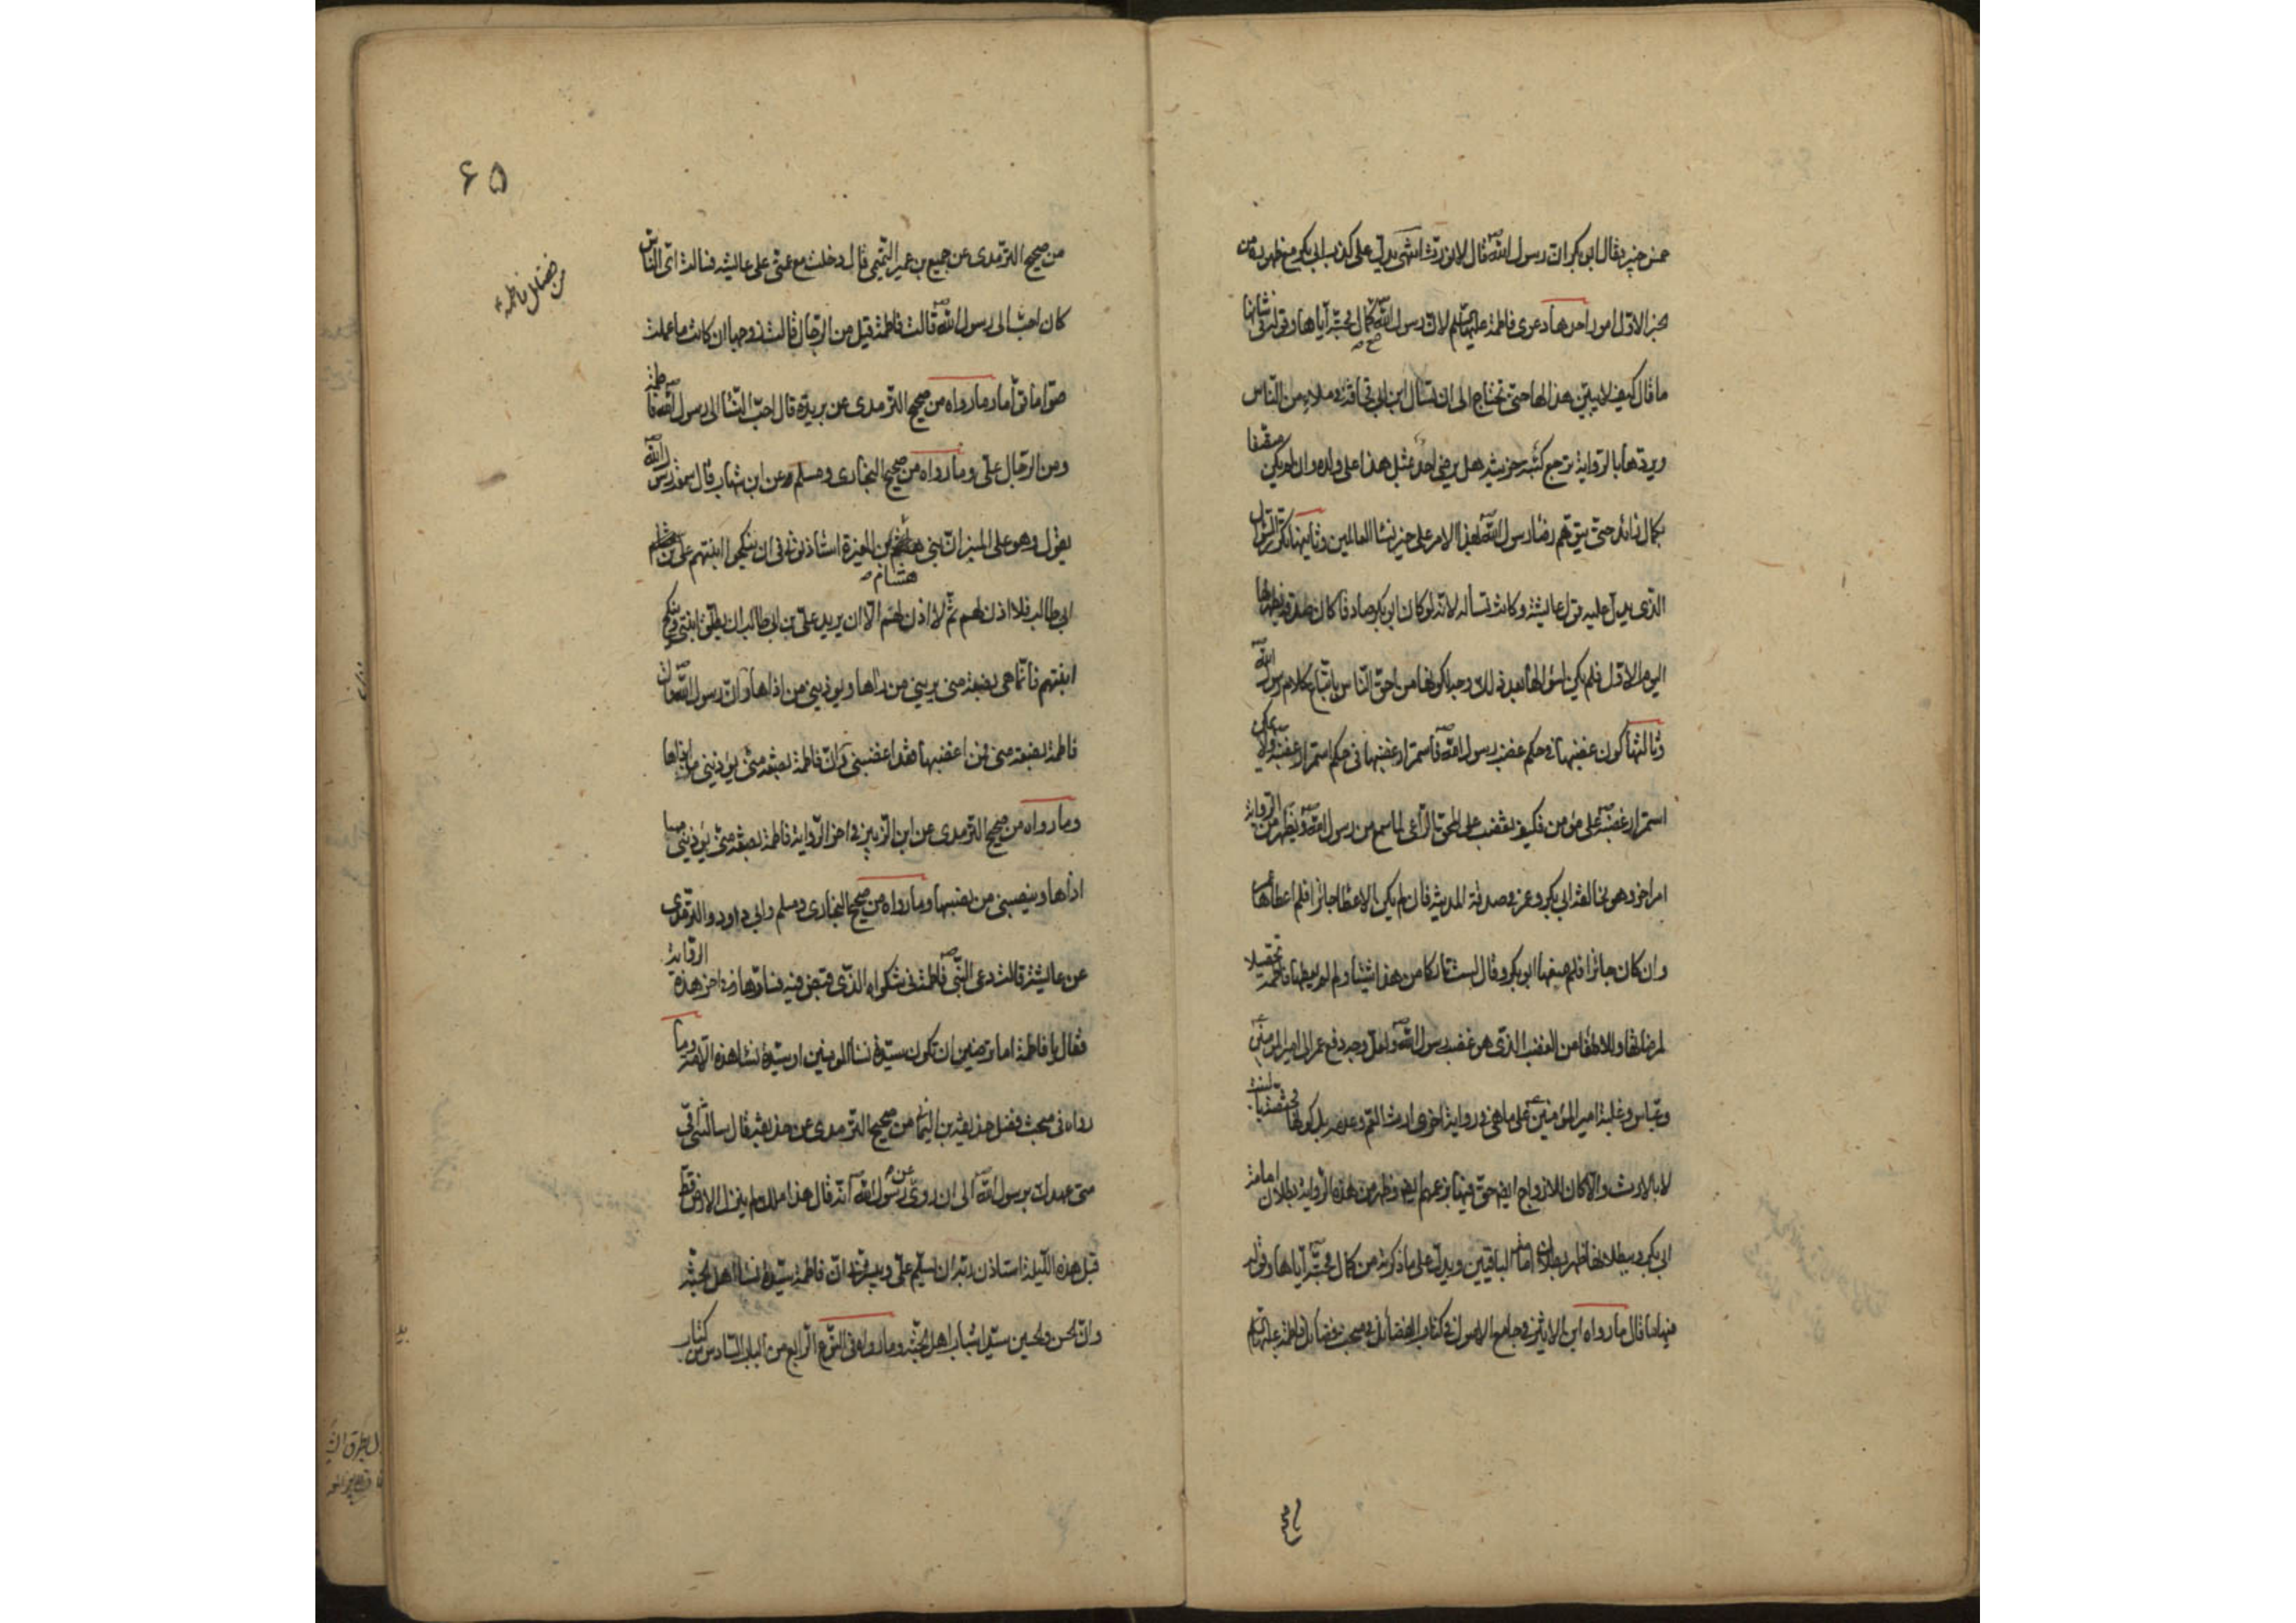 خمس خيبر فقال ابو بكر ان رسول الله ص قال لا نورث انتهى يدل على كذب ابي بكر مع ظهوره من
الخبر الاول امور احدها دعوى فاطمة عليها السلم لان رسول الله ص مع كمال محبته اياها وقوله في شانها
ما قال كيف لا يبين هذا لها حتى تحتاج الى ان تسال ابن ابي قحافة في ملاء من الناس
ويردها بالرواية ترجع كئيبة حزينة هل يرضى احد بمثل هذا على ولده وان لم يكن متصفا
بكمال زائد حتى يتوهم رضا رسول الله ص لهذا الامر على خير نساء العالمين وثانيها تكرر السؤال
الذي يدل عليه قول عايشة وكانت تساله لانه لو كان ابو بكر صادقا كان صدقه يظهر لها
اليوم الاول فلم يكن لسؤالها بعد ذلك وجه لكونها من احق الناس باتباع كلام رسول الله ص
وثالثها كون غضبها في حكم غضب رسول الله ص فاستمرار غضبها في حكم استمرار غضبه ولا يمكن
استمرار غضبه ص على مؤمن فكيف يغضب على المحق الراعي لما سمع من رسول الله ص ويظهر من الرواية
امر اخر وهو مخالفة ابي بكر وعمر في صدقة المدينة فان لم يكن الاعطا جائزا فلم اعطاها عمر
وان كان جائزا فلم منعها ابو بكر وقال لست تاركا من هذا شيئا ولم لم يعطها فاطمة تحصيلا
لمرضاتها وللاطفاء من الغضب الذي هو غضب رسول الله ص ولعل وجه دفع عمر الى امير المؤمنين ع
وعباس وغلبة امير المؤمنين ع على ما هي في رواية اخرى ارث العم وعدمه بل كونها مختصة بالبنت
لا بالارث والا كان للازواج ايضا حق فيها بزعمهم ايضا وظهر من هذه الرواية بطلان امامة
ابي بكر وببطلانها ظهر بطلان امامة الباقيين ويدل على ما ذكرته من كمال محبته اياها وقوله
فيها ما قال ما رواه ابن الاثير في جامع الاصول في كتاب الفضايل في مبحث فضايل فاطمة عليها السلم
من صحيح
٦٥
من فضايل فاطمة ع
من صحيح الترمذى عن جميع بن عمير التيمي قال دخلت مع عمتي على عايشة فسالت اى الناس
كان احب الى رسول الله ص قالت فاطمة قيل من الرجال قالت زوجها ان كان ما علمت
صوّاما قوّاما وما رواه من صحيح الترمذى عن بريدة قال احب النسا الى رسول الله ص فاطمة
ومن الرجال علي وما رواه من صحيح البخارى ومسلم عن ابن شهاب قال سمعت رسول الله ص
يقول وهو على المنبر ان بني هشام بن المغيرة استاذنوني في ان ينكحوا ابنتهم علي بن
ابي طالب فلا اذن لهم ثم لا اذن لهم الا ان يريد علي بن ابي طالب ان يطلق ابنتي وينكح
ابنتهم فانما هي بضعة مني يريبني من رابها ويوذيني من اذاها وان رسول الله ص قال
فاطمة بضعة مني فمن اغضبها فقد اغضبني وان فاطمة بضعة مني يوذيني من اذاها
وما رواه من صحيح الترمدى عن ابن الزبير في اخر الرواية فاطمة بضعة مني يوذيني ما
اذاها وينصبني من نصبها وما رواه من صحيح البخارى ومسلم وابي داود والترمذى
عن عايشة قالت دعى النبي ص فاطمة في شكواه الذى قبض فيه فسارّها في اخر هذه الرواية
فقال يا فاطمة اما ترضين ان تكوني سيدة نساء المومنين او سيدة نساء هذه الامة وما
رواه في مبحث فضل حذيفة بن اليمان من صحيح الترمدى عن حذيفة قال سالتني امي
متى عهدك برسول الله ص الى ان روى عن رسول الله ص انه قال هذا ملك لم ينزل الارض قط
قبل هذه الليلة استاذن ربه ان يسلم علي ويبشرني ان فاطمة سيدة نساء اهل الجنة
وان الحسن والحسين سيدا شباب اهل الجنة وما رواه في النوع الرابع من الباب السادس من كتاب